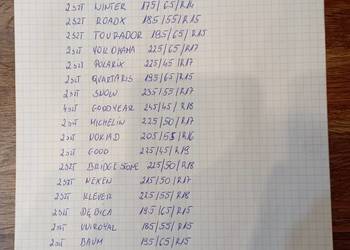 2 SZT WINTER 175/65/R14
2 SZT ROADX 185/55/R15
2SZT TOURADOR 195/65/R15
2SZT YOKOHAMA 225/65/R17
2SZT POLARIX 225/45/R17
2SZT QUARTARIS 195/65/R15
2SZT SNOW 235/55/R17
4SZT GOODYEAR 245/45/R18
2SZT MICHELIN 225/50/R17
2SZT NOKIAD 205/55/R16
2SZT GOOD 225/45/R19
2SZT BRIDGESTONE 225/50/R18
2SZT NEXEN 215/50/R17
2SZT KLEVER 225/55/R18
2SZT DĘDICA 195/65/R15
2SZT UNIROYAL 185/55/R15
2SZT BAUM 195/65/R15